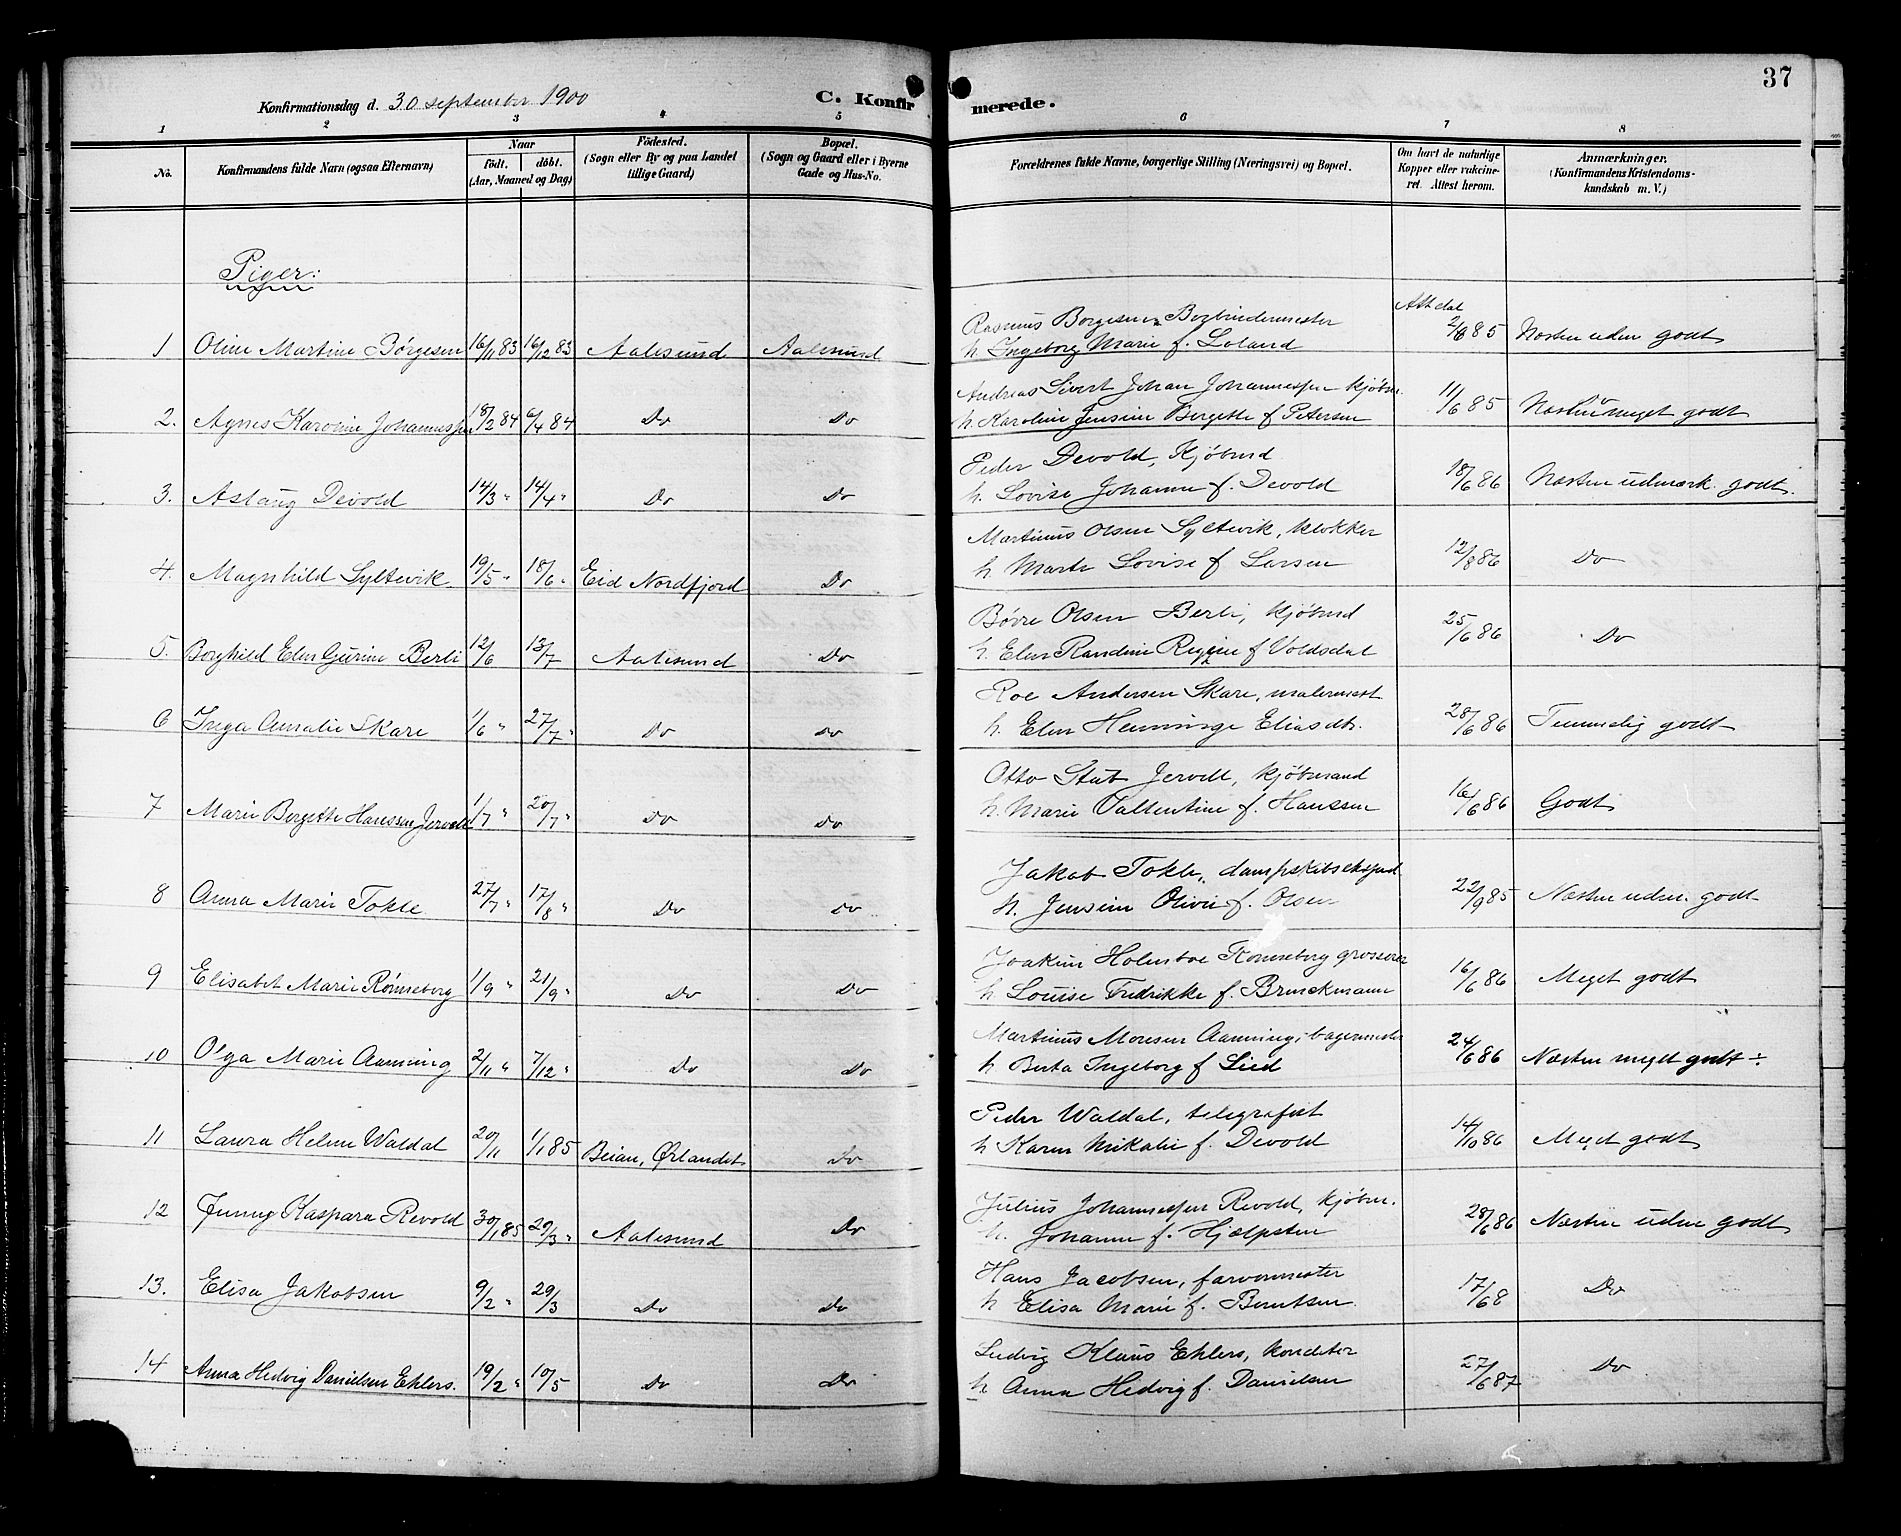 37
Konfirmationsdag d. 30 september 1900
C. Konfirmerede.
1 2 3 4 5 6 7 8
No.
Konfirmandens fulde Navn (ogsaa Efternavn)
Naar
födt. döbt.
(Aar, Maaned og Dag)
Födested.
(Sogn eller By og paa Landet
tillige Gaard)
Bopæl.
(Sogn og Gaard eller i Byerne
Gade og Hus-No.
Forældrenes fulde Navne, borgerlige Stilling (Næringsvei) og Bopæl.
Om havt de naturlige
Kopper eller vakcine-
ret. Attest herom.
Anmærkninger.
(Konfirmandens Kristendoms-
kundskab m. V.)
Piger:
Rasmus Børgesen Bogbindermester
1 Oline Martine Børgesen 16/11 83 16/12 83 Aalesund Aalesund h. Ingeborg Marie f. Loland 85 Næsten uden godt
Andreas Sivert Johan Johannessen kjøbm.
2. Agnes Karoline Johannessen 18/2 84 6/4 84 Do Do h. Karoline Jensine Bergette f Petersen 11/6 85 Næsten meget godt
Peder Devold, Kjøbmd
3. Aslaug Devold 14/3 " 14/4 " Do Do h. Lovise Johanne f. Devold 18/6 86 Næsten udmærk. godt.
Martinus Olsen Syltevik, klokker
4. Magnhild Syltevik 19/5 " 18/6 " Eid Nordfjord Do h Marte Lovise f Larsen 12/8 86 Do
Bøvre Olsen Berli, kjøbmd
5. Borghild Elen Gurine Berli 12/6 13/7 Aalesund Do h. Elen Randine Regine f Voldsdal 25/6 86 Do
Roe Andersen Skare, malermest
6 Inga Amalie Skare 1/6 " 27/7 " Do Do h. Elen Henninge Eliasdt. 28/6 86 Temmelig godt
Otto Stub Jervell, kjøbmand
7 Marie Bergette Hanssen Jervell 1/7 " 20/7 " Do Do h. Marie Valtentine f. Hanssen 16/6 86 Godt
Jakob Tokle, dampskibsekspd
8 Anna Marie Tokle 27/7 " 17/8 " Do Do h. Jensine Olivie f. Olsen 22/9 85 Næsten uden. godt
Joakim Holmboe Rønneberg grosserer
9 Elisabet Marie Rønneberg 1/9 " 21/9 " Do Do h Louise Fredrikke f. Brinckmann 16/6 86 Meget godt
Martinus Moresen Aanning, bagermester
10 Olga Marie Aanning 2/11 " 7/12 " Do Do h Berta Ingeborg f Lied 24/6 86 Næsten meget godt ÷
Peder Waldal, telegrafist
11 Laura Helene Waldal 20/11 1/1 85 Beian, Ørlandet Do h Karen Mikalie f. Devold 14/10 86 Meget godt
Julius Johannessen Revold, kjøbm.
12 Jenny Kaspara Revold 30/1 85 29/3 " Aalesund Do h. Johanne f. Hjelpsten 28/6 86 Næsten uden godt
Hans Jacobsen, farvermester
13. Elisa Jakobsen 9/2 " 29/3 Do Do h Elisa Marie f. Berntsen 17/68 Do
Ludvig Klaus Ehlers, konditor
14 Anna Hedvig Danielsen Ehlers. 19/2 " 10/5 Do Do h Anna Hedvig f. Danielsen 27/6 87 Do